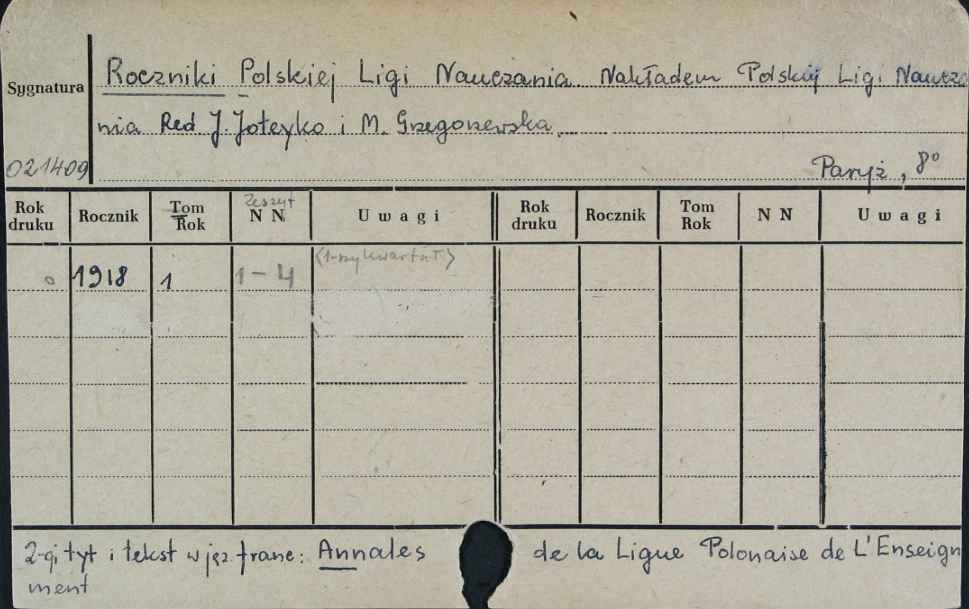 Roczniki Polskiej Ligi Nauczania. Nakładem Polskiej Ligi Naucza
Sygnatura
nia Red J. Joteyko i M. Grzegorzewska.
021409 Paryż, 8°
Rok druku Rocznik Tom Rok Zeszyt N N Uwagi Rok druku Rocznik Tom Rok N N Uwagi
(1-szy kwartał)
1918 1 1-4
2-gi tyt i tekst w jęz. franc: Annales de la Ligue Polonaise de L'Enseign
ment